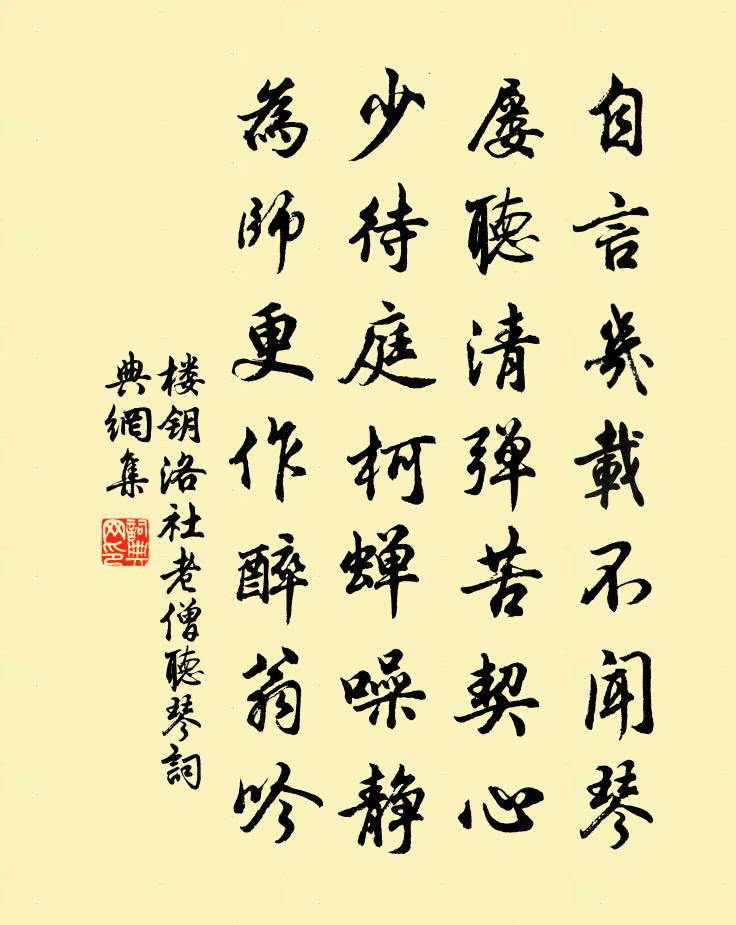 自言幾載不聞琴
屡聽清弹苦契心
少待庭柯蝉噪静
為師更作醉翁吟
楼钥洛社老僧聽琴詞
典網集
詞典
网印